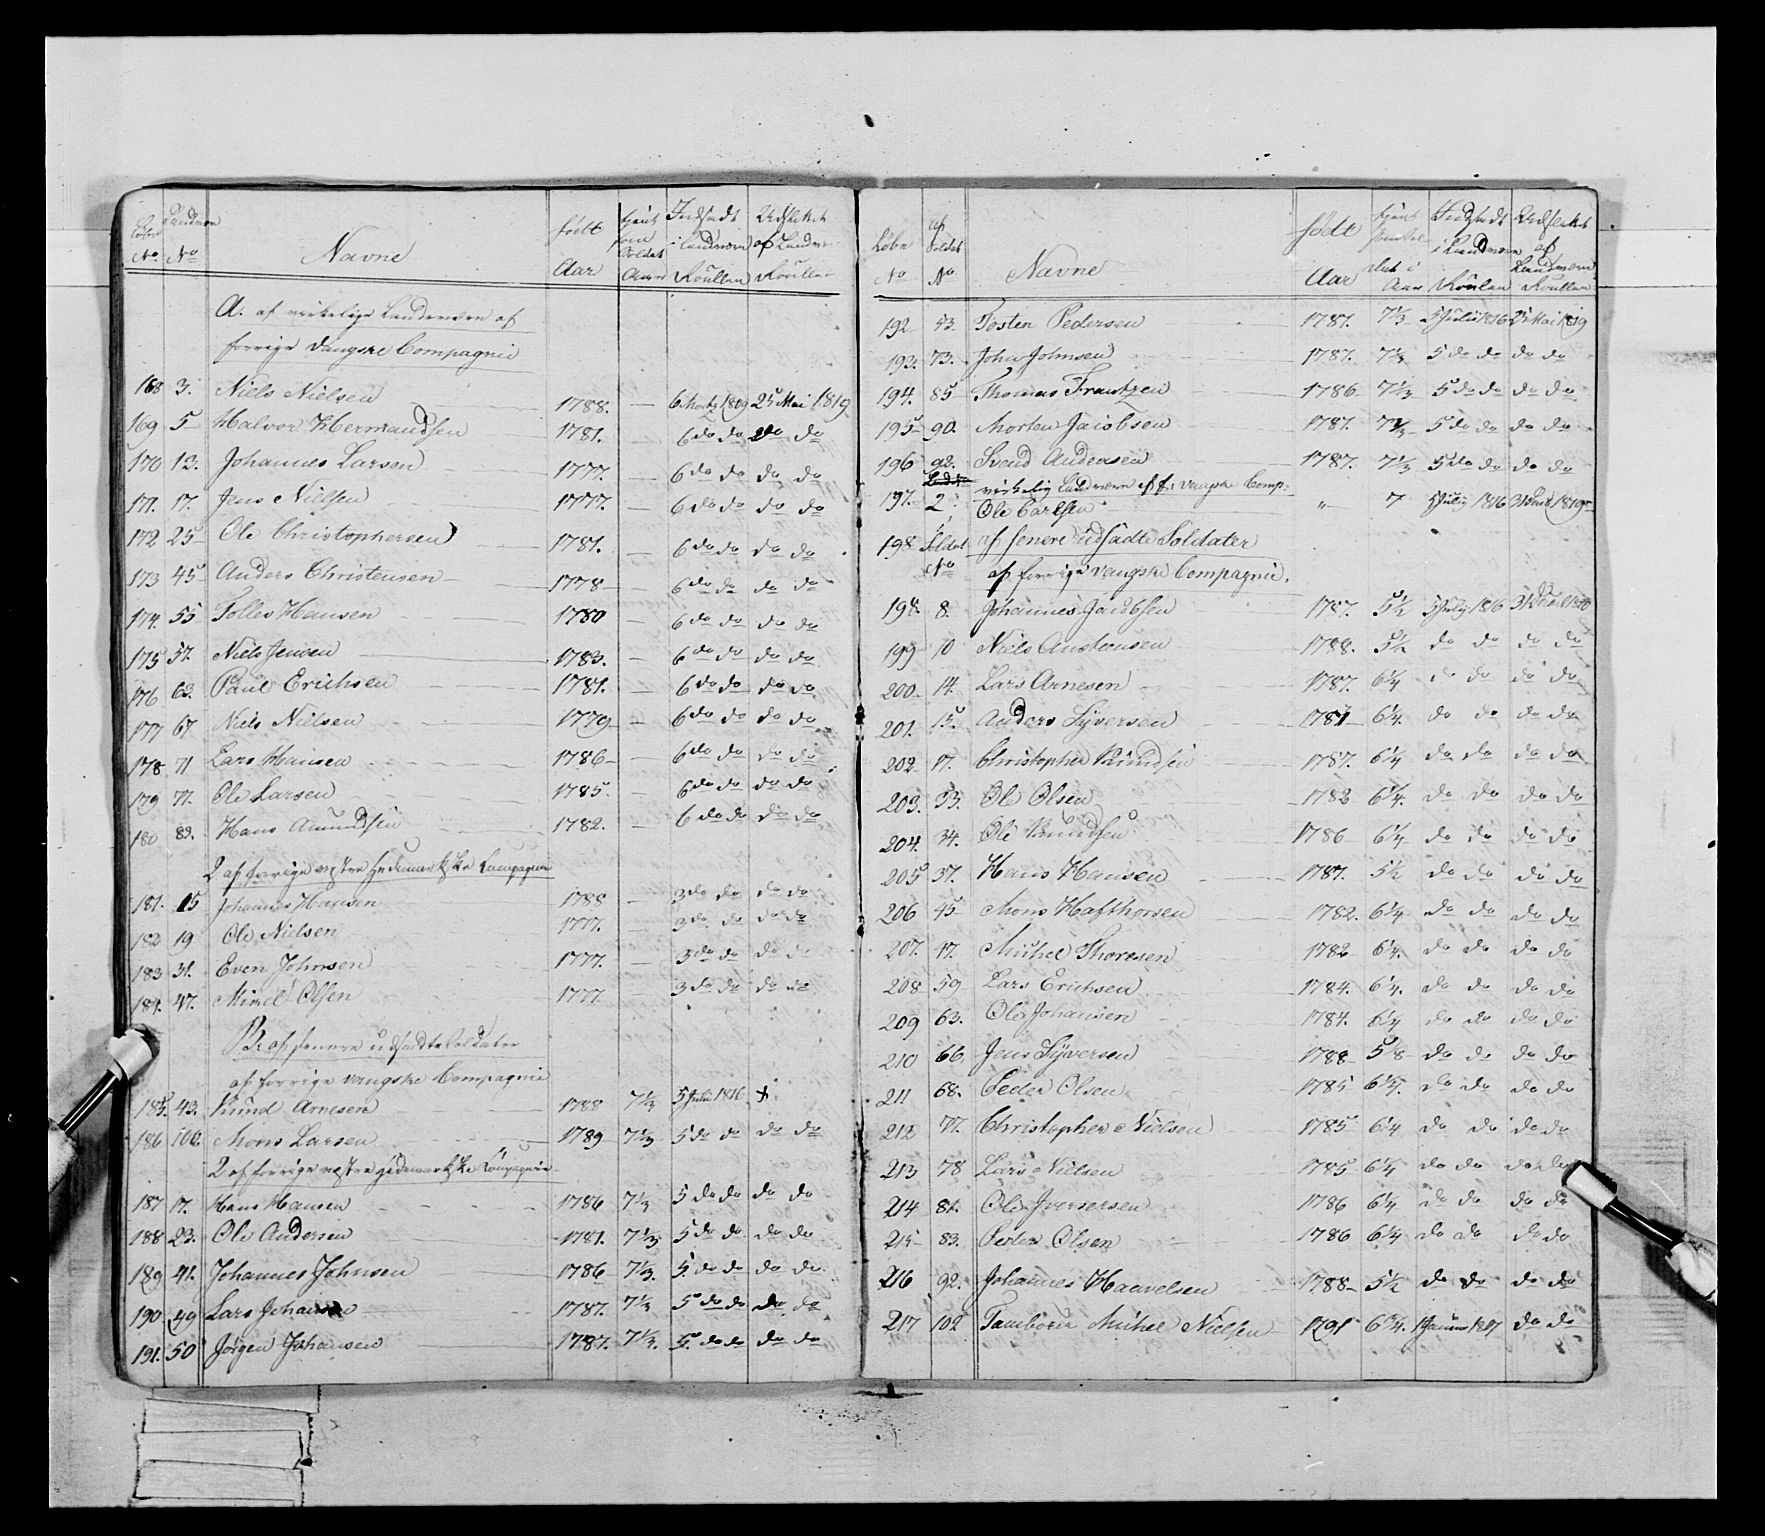 Løbe Landværn Navne født tjent Indsadt Udslettet
No No Aar som Soldat Aar i Landværn Roullen af Landværn Roullen
A. af virkelige Landeværn af
forrige Vangske Compagnie
168 3. Niels Nielsen 1788. — 6 Martz 1809 25 Mai 1819
169 5 Halvor Hermandsen 1781. — 6 do do do do
170 12. Johannes Larsen 1777. — 6 do do do do
171. 17. Jens Nielsen 1777. — 6 do do do do
172 25 Ole Christophersen 1781. — 6 do do do do
173 45 Anders Christensen 1778 — 6 do do do do
174. 55 Tolles Hansen 1780 6 do do do do
175 57. Niels Jensen 1783. — 6 do do do do
176 63. Paul Erichsen 1781. — 6 do do do do
177 67. Niels Nielsen 1779 — 6 do do do do
178 71 Lars Hansen 1786 — 6 do do do do
179 77. Ole Larsen 1785. — 6 do do do do
180 89. Hans Amundsen 1782. — 6 do do do do
2 af forrige vestre Hedemarkske Compagnie
181. 15 Johannes Hansen 1788 — 3 do do do do
182 19 Ole Nielsen 1777. — 3 do do do do
183 31. Even Johnsen 1777. — 3 do do do do
184. 47. Mikel Olsen 1777 — 3 do do do do
B: af senere udsadte Soldater
af forrige vangske Compagnie
185. 43. Knud Arnesen 1788 7 1/3 5 Juli 1816 +
186 100. Mons Larsen 1789 7 1/3 5 do do do do
2 af forrige vestre Hedemarkske Compagnie
187 17. Hans Hansen 1786 7 1/3 5 do do do do
188 23. Ole Andersen 1781. 7 1/3 5 do do do do
189 41. Johannes Johnsen 1786 7 1/3. 5. do do do do
190 49 Lars Johansen 1787. 7 1/3 5 do do do do
191. 50 Jørgen Johansen 1787. 7 1/3. 5. do do do do
Løbe Soldat Navne født tjent Indsadt Udslettet
No No Aar Aar i Landværn Roulen af Landværn Roullen
192 53. Tosten Pedersen 1787. 7 1/3 5 Julii 1816 25 Mai 1819
193. 73. John Johnsen 1787. 7 1/3 5 do do do do
194. 85 Thomas Frantzen 1786 7 1/3 5 do do do do
195 90. Morten Jacobsen 1787. 7 1/3 5 do do do do
196 92. Svend Andersen 1787. 7 1/3 5 do do do do
virkelig Landværn af f: vangske Comp:
197. 2 Ole Carlsen " 7 5 July 1816
198 Soldat af senere udsadte Soldater
No af forrige vangske Compagnie.
198. 8. Johannes Jacobsen 1787. 5 1/2 5 July 1816
199 10 Niels Austensen 1788. 5 1/2 do do do do
200 14. Lars Arnesen 1787. 6 1/4 do do do do
201. 15. Anders Syversen 1781 6 1/4 do do do do
202 17. Christopher Knudsen 1787. 6 1/4 do do do do
203. 33. Ole Olsen 1782 6 1/4. do do do do
204. 34. Ole Knudsen 1786 6 1/4 do do do do
205 37. Hans Hansen 1787. 5 1/2 do do do do
206 45 Mons Hafthorsen 1782. 6 1/4 do do do do
207. 47. Mickel Thoresen 1782 6 1/4. do do do do
208 59 Lars Erichsen 1784. 6 1/4. do do do do
209 63. Ole Johansen 1784. 6 1/4 do do do do
210 66. Jens Syversen 1788 do do do do
211 68. Peder Olsen 1785 6 1/4. do do do do
212 77. Christopher Nielsen 1785 6 1/4 do do do do
213 78 Lars Nielsen 1785 6 1/4 do do do do
214 81. Ole Iversersen 1786 6 1/4 do do do do
215 83. Peder Olsen 1786 6 1/4 do do do do
216 92. Johannes Haavelsen 1788 5 1/2 do do do do
217 102 Tambour Mickel Nielsen 1791 1817 do do